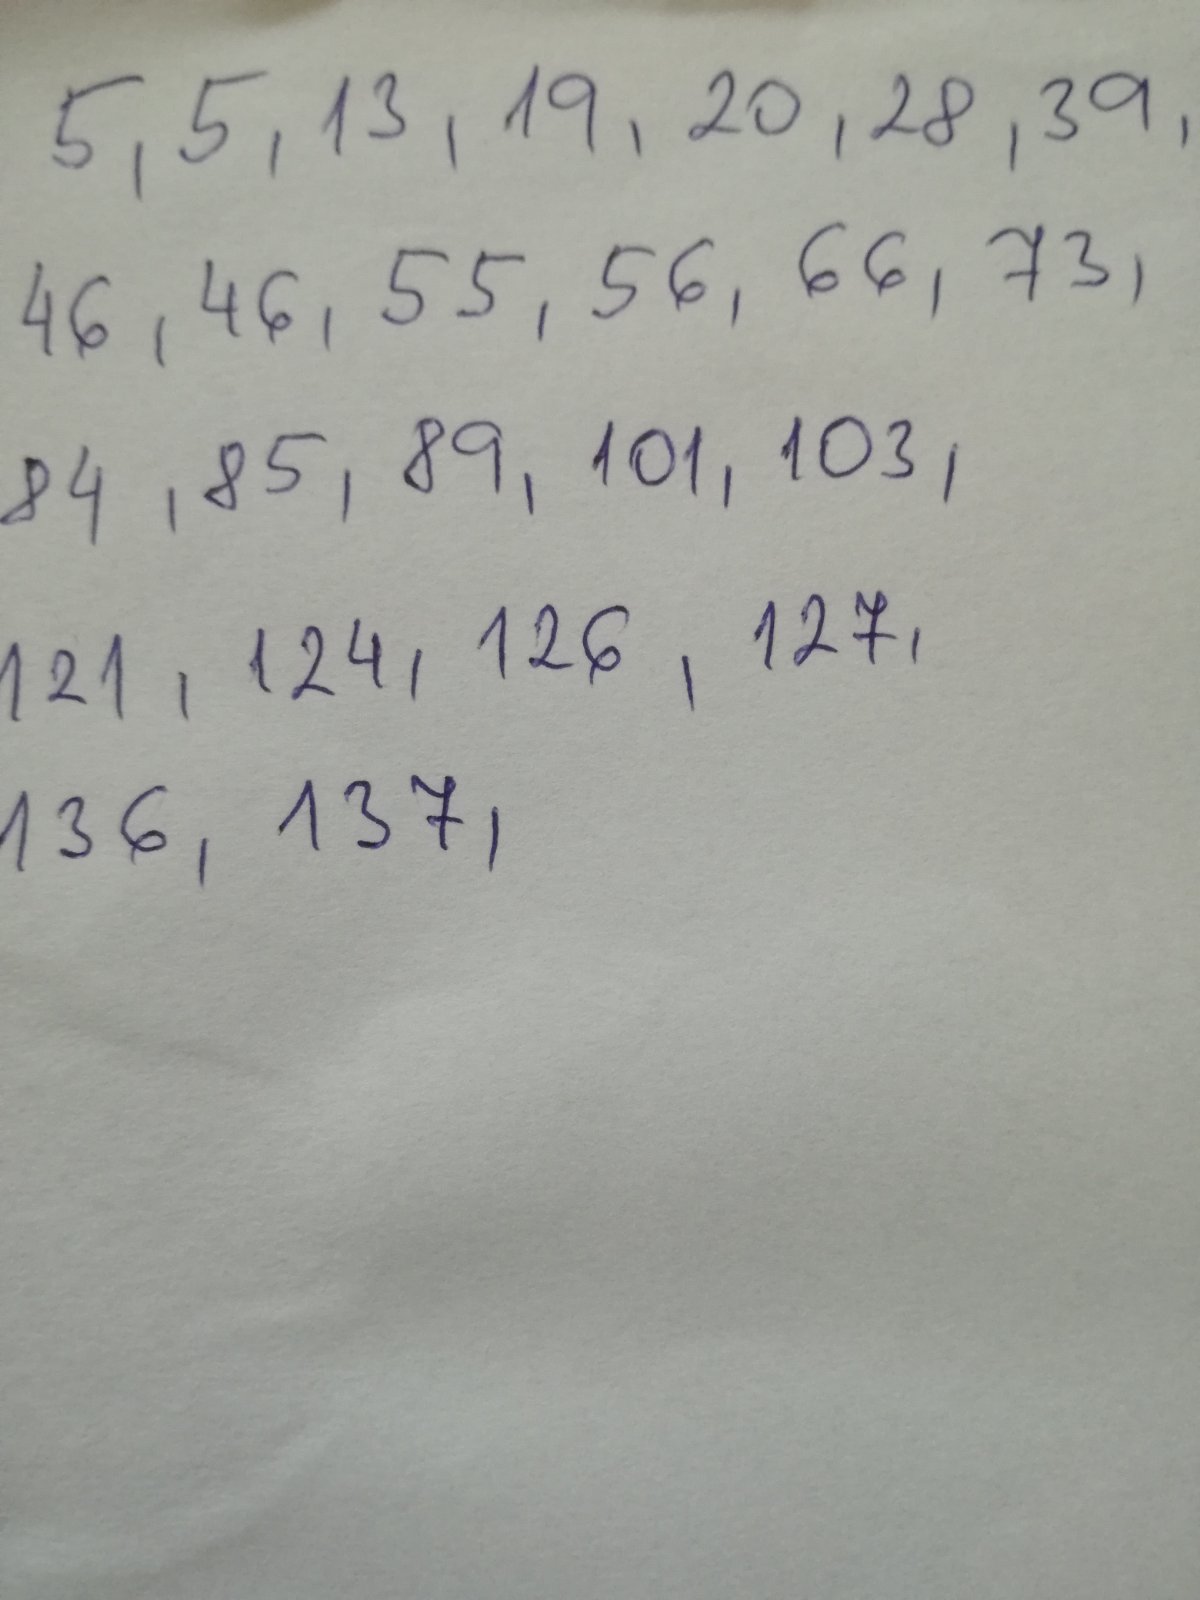 5, 5, 13, 19, 20, 28, 39,
46, 46, 55, 56, 66, 73,
84, 85, 89, 101, 103,
121, 124, 126, 127,
136, 137,